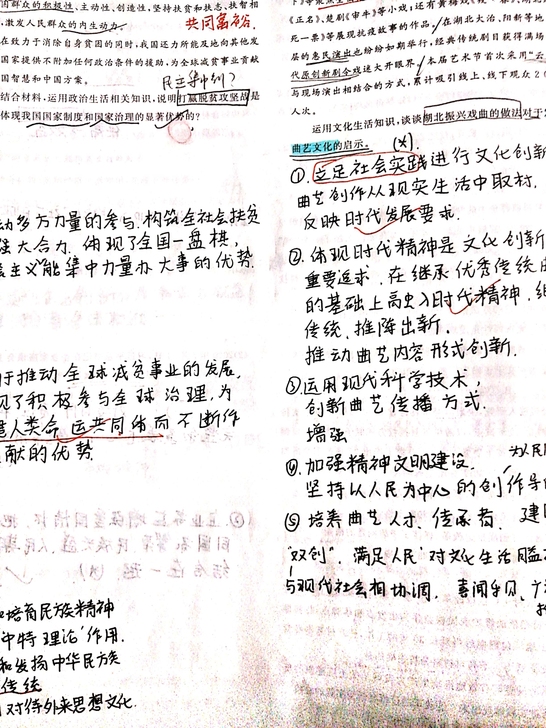 因群众的积极性、主动性、创造性，坚持扶贫和扶志、扶智相
，激发人民群众的内生动力。
共同富裕
在致力于消除自身贫困的同时，我国还力所能及地向其他发
国家提供不附加任何政治条件的援助，为全球减贫事业贡献
国智慧和中国方案。
民主集中制？
结合材料，运用政治生活相关知识，说明打赢脱贫攻坚战是
体现我国国家制度和国家治理的显著优势的？
动多方力量的参与，构筑全社会扶贫
强大合力，体现了全国一盘棋，
主义能集中力量办大事的优势.
于推动全球减贫事业的发展，
见了积极参与全球治理，为
建人类命运共同体而不断作
献的优势
培育民族精神
中特理论作用.
和发扬中华民族
传统
对待外来思想文化.
《正名》、楚剧《审牛》等小戏；还有黄梅戏
死一票》等展现抗疫故事的作品，在湖北大冶、阳新等地
层的惠民演出也纷纷如期举行，经典传统剧目获得满场
代原创新剧令戏迷大开眼界。本届艺术节首次采用了“云
与现场演出相结合的方式，累计吸引线上、线下观众2
人次。
运用文化生活知识，谈谈湖北振兴戏曲的做法对于
曲艺文化的启示。
①.立足社会实践进行文化创新
曲艺创作从现实生活中取材，
反映时代发展要求.
②.体现时代精神是文化创新
重要追求，在继承优秀传统
的基础上高史入时代精神，继
传统，推陈出新，
推动曲艺内容形式创新.
③运用现代科学技术，
创新曲艺传播方式.
增强
④.加强精神文明建设.
为人民
坚持以人民为中心的创作导
⑤培养曲艺人才、传承者，建
“双创”，满足人民对文化生活
与现代社会相协调，喜闻乐见、